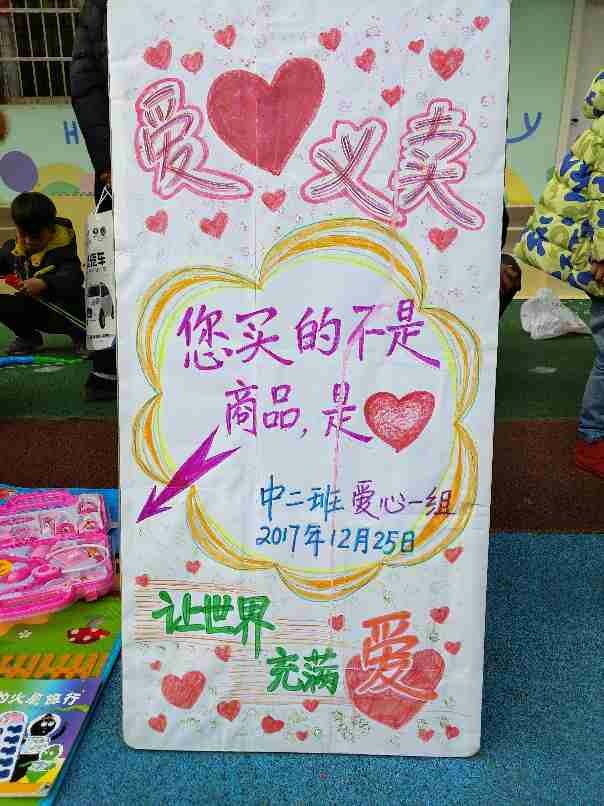 爱❤义卖
您买的不是
商品,是❤
中二班 爱心一组
2017年12月25日
让世界
充满 爱
的火星旅行